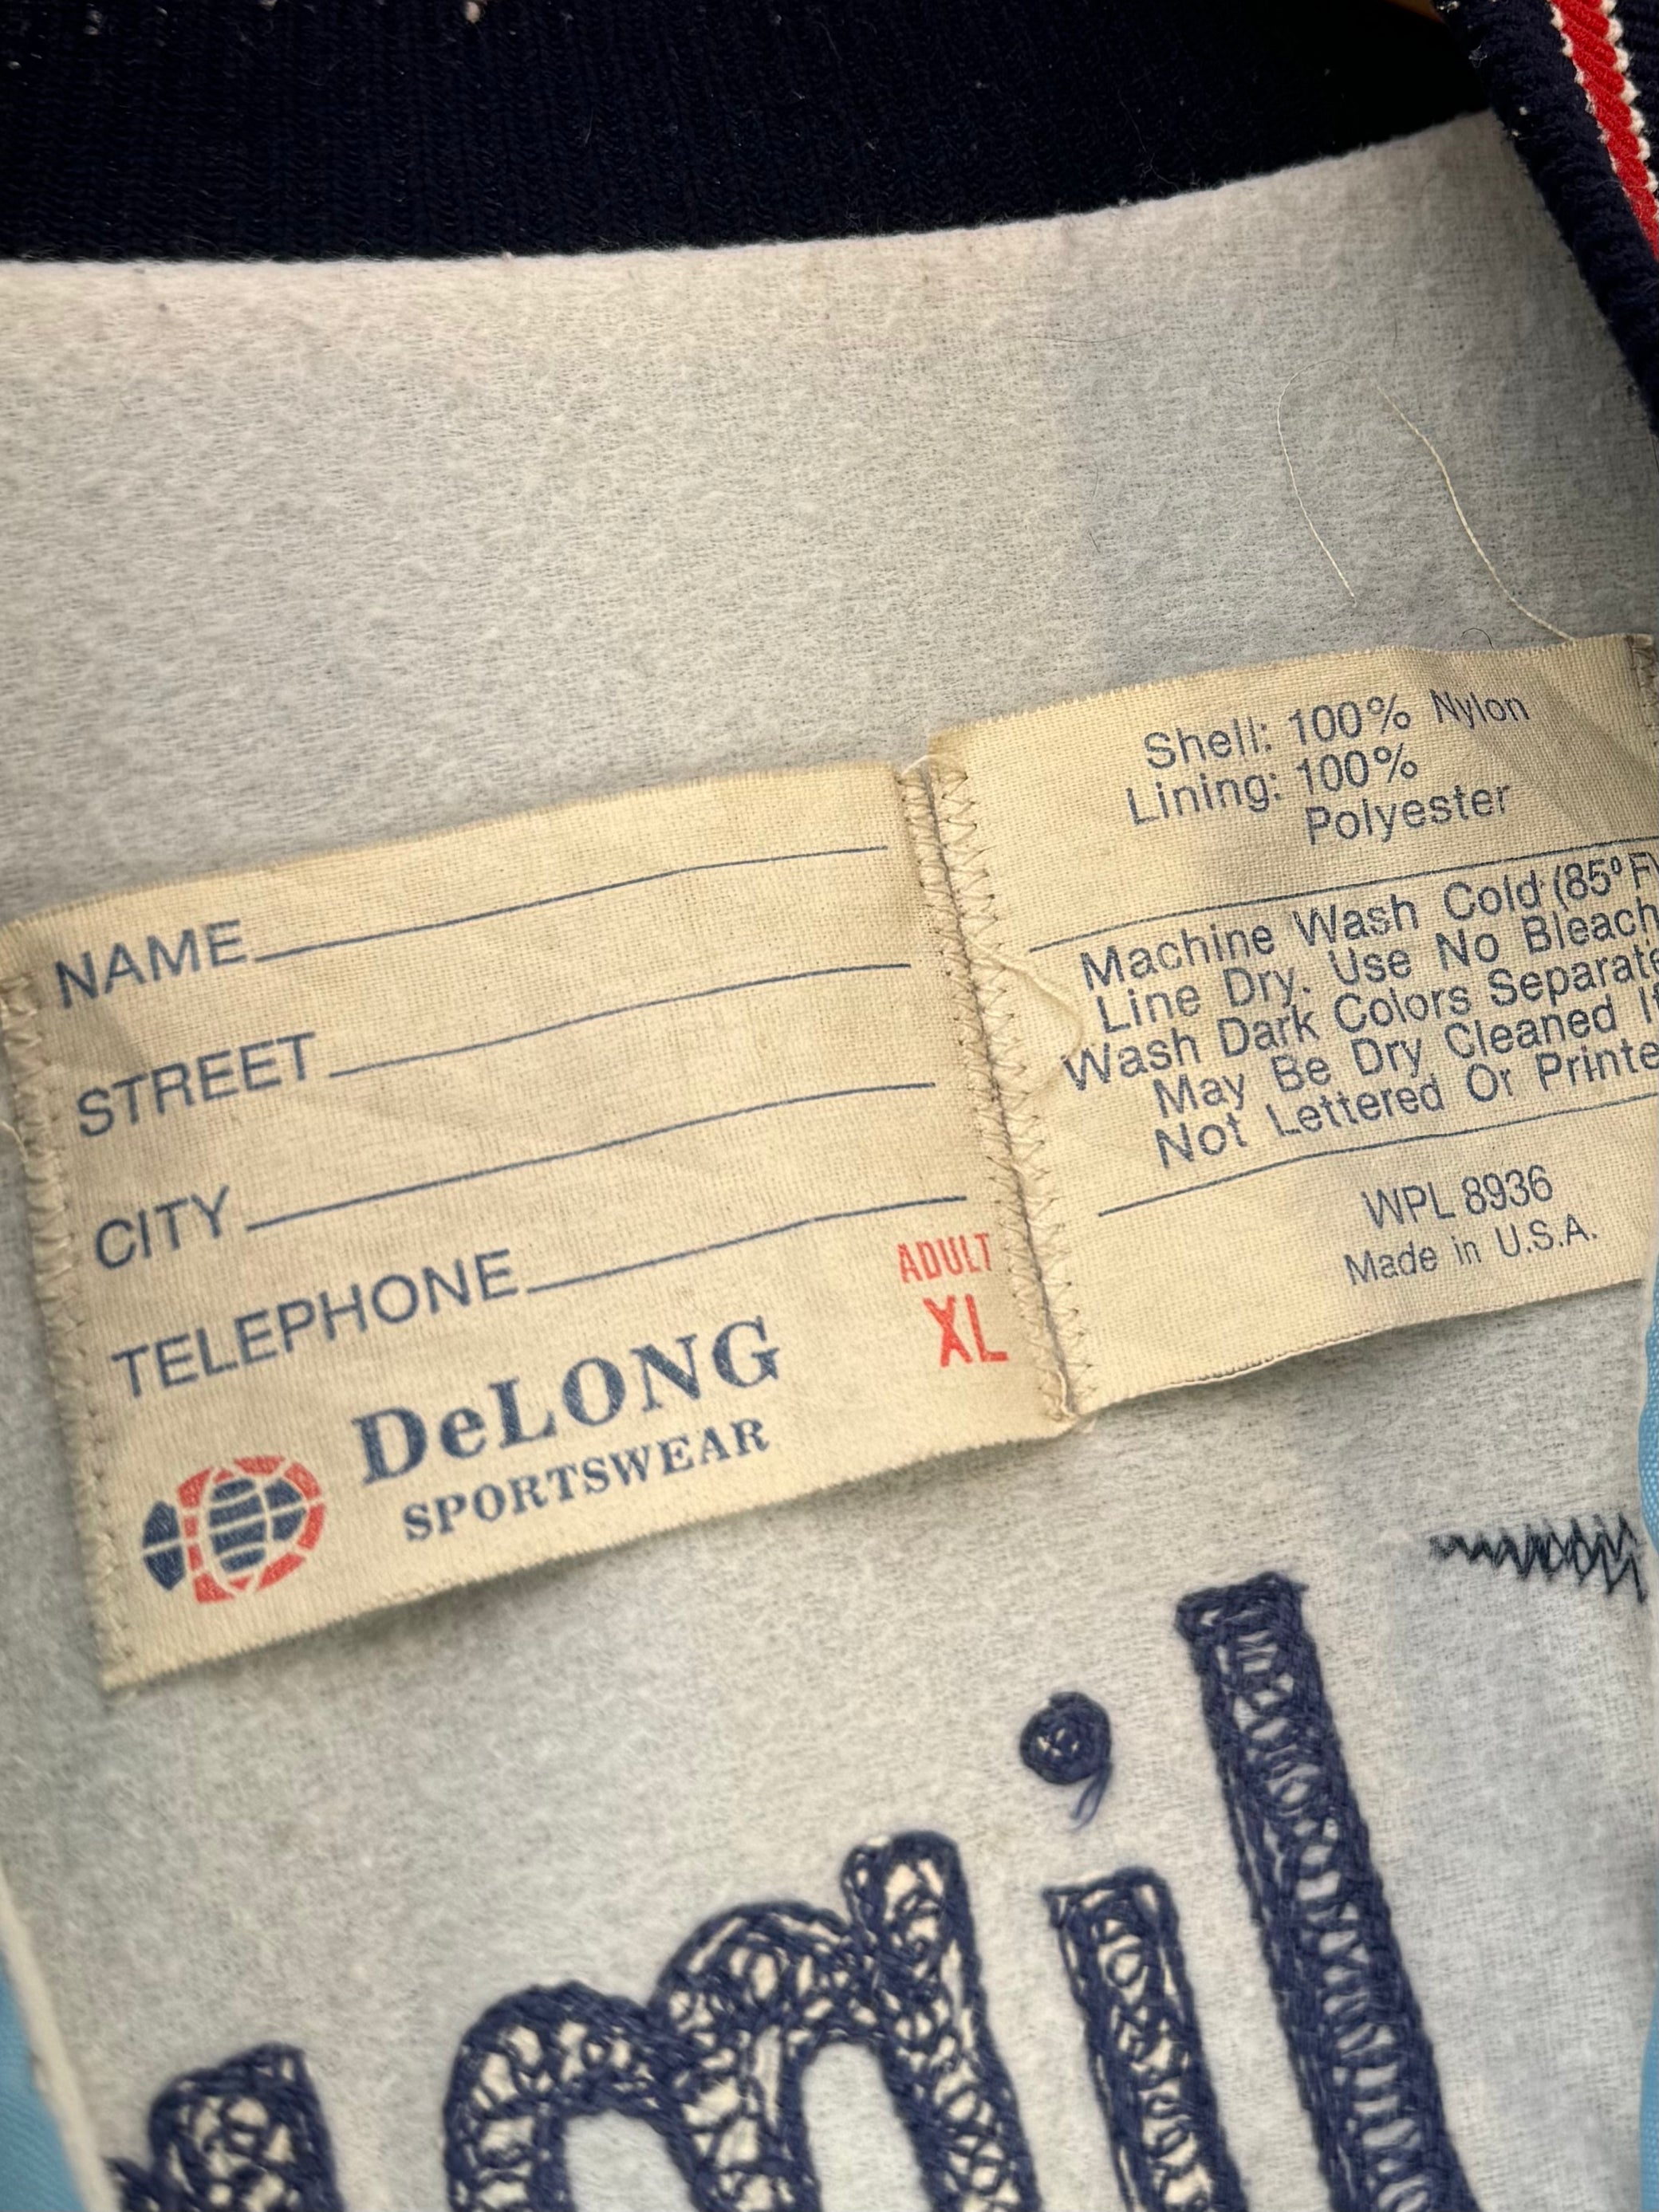 NAME
STREET
CITY
TELEPHONE
ADULT
XL
DeLONG
SPORTSWEAR
Shell: 100% Nylon
Lining: 100%
Polyester
Machine Wash Cold (85°F)
Line Dry. Use No Bleach
Wash Dark Colors Separate
May Be Dry Cleaned If
Not Lettered Or Printe
WPL 8936
Made in U.S.A.